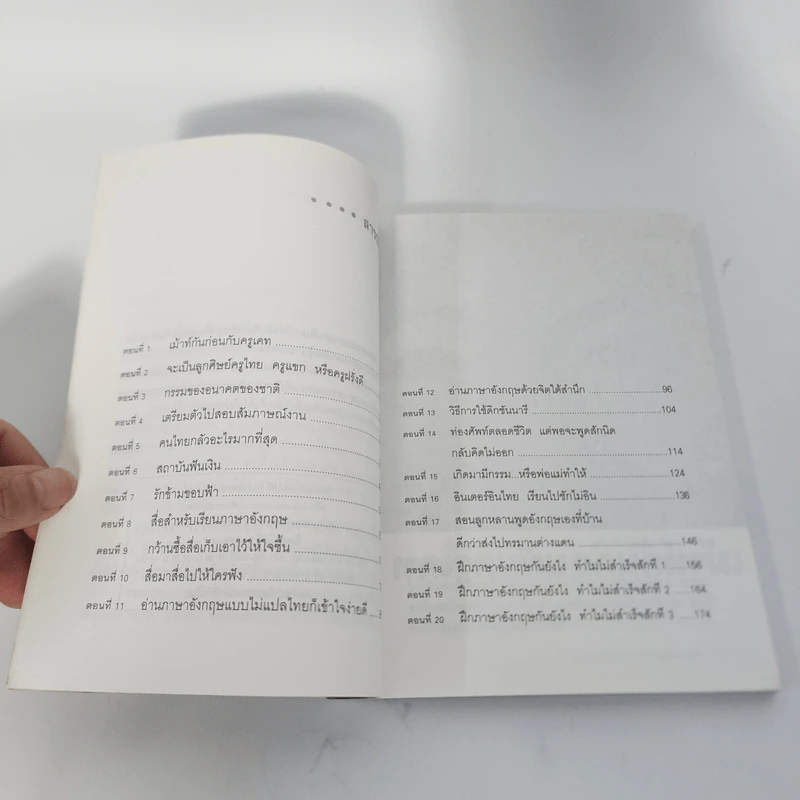 ตอนที่ 1 เม้าท์กันก่อนกับครูเคท
ตอนที่ 2 จะเป็นลูกศิษย์ครูไทย ครูแขก หรือครูฝรั่งดี
ตอนที่ 3 กรรมของอนาคตของชาติ
ตอนที่ 4 เตรียมตัวไปสอบสัมภาษณ์งาน
ตอนที่ 5 คนไทยกลัวอะไรมากที่สุด
ตอนที่ 6 สถาบันฟันเงิน
ตอนที่ 7 รักข้ามขอบฟ้า
ตอนที่ 8 สื่อสำหรับเรียนภาษาอังกฤษ
ตอนที่ 9 กว้านซื้อสื่อเก็บเอาไว้ให้ใจชื้น
ตอนที่ 10 สื่อมาสื่อไปให้ใครฟัง
ตอนที่ 11 อ่านภาษาอังกฤษแบบไม่แปลไทยก็เข้าใจง่ายดี
ตอนที่ 12 อ่านภาษาอังกฤษด้วยจิตใต้สำนึก 96
ตอนที่ 13 วิธีการใช้ดิกชันนารี 104
ตอนที่ 14 ท่องศัพท์ตลอดชีวิต แต่พอจะพูดสักนิด
กลับคิดไม่ออก 114
ตอนที่ 15 เกิดมามีกรรม...หรือพ่อแม่ทำให้ 124
ตอนที่ 16 อินเตอร์อินไทย เรียนไปซักไม่อิน 136
ตอนที่ 17 สอนลูกหลานพูดอังกฤษเองที่บ้าน
ดีกว่าส่งไปทรมานต่างแดน 146
ตอนที่ 18 ฝึกภาษาอังกฤษกันยังไง ทำไมไม่สำเร็จสักที 1 156
ตอนที่ 19 ฝึกภาษาอังกฤษกันยังไง ทำไมไม่สำเร็จสักที 2 164
ตอนที่ 20 ฝึกภาษาอังกฤษกันยังไง ทำไมไม่สำเร็จสักที 3 174